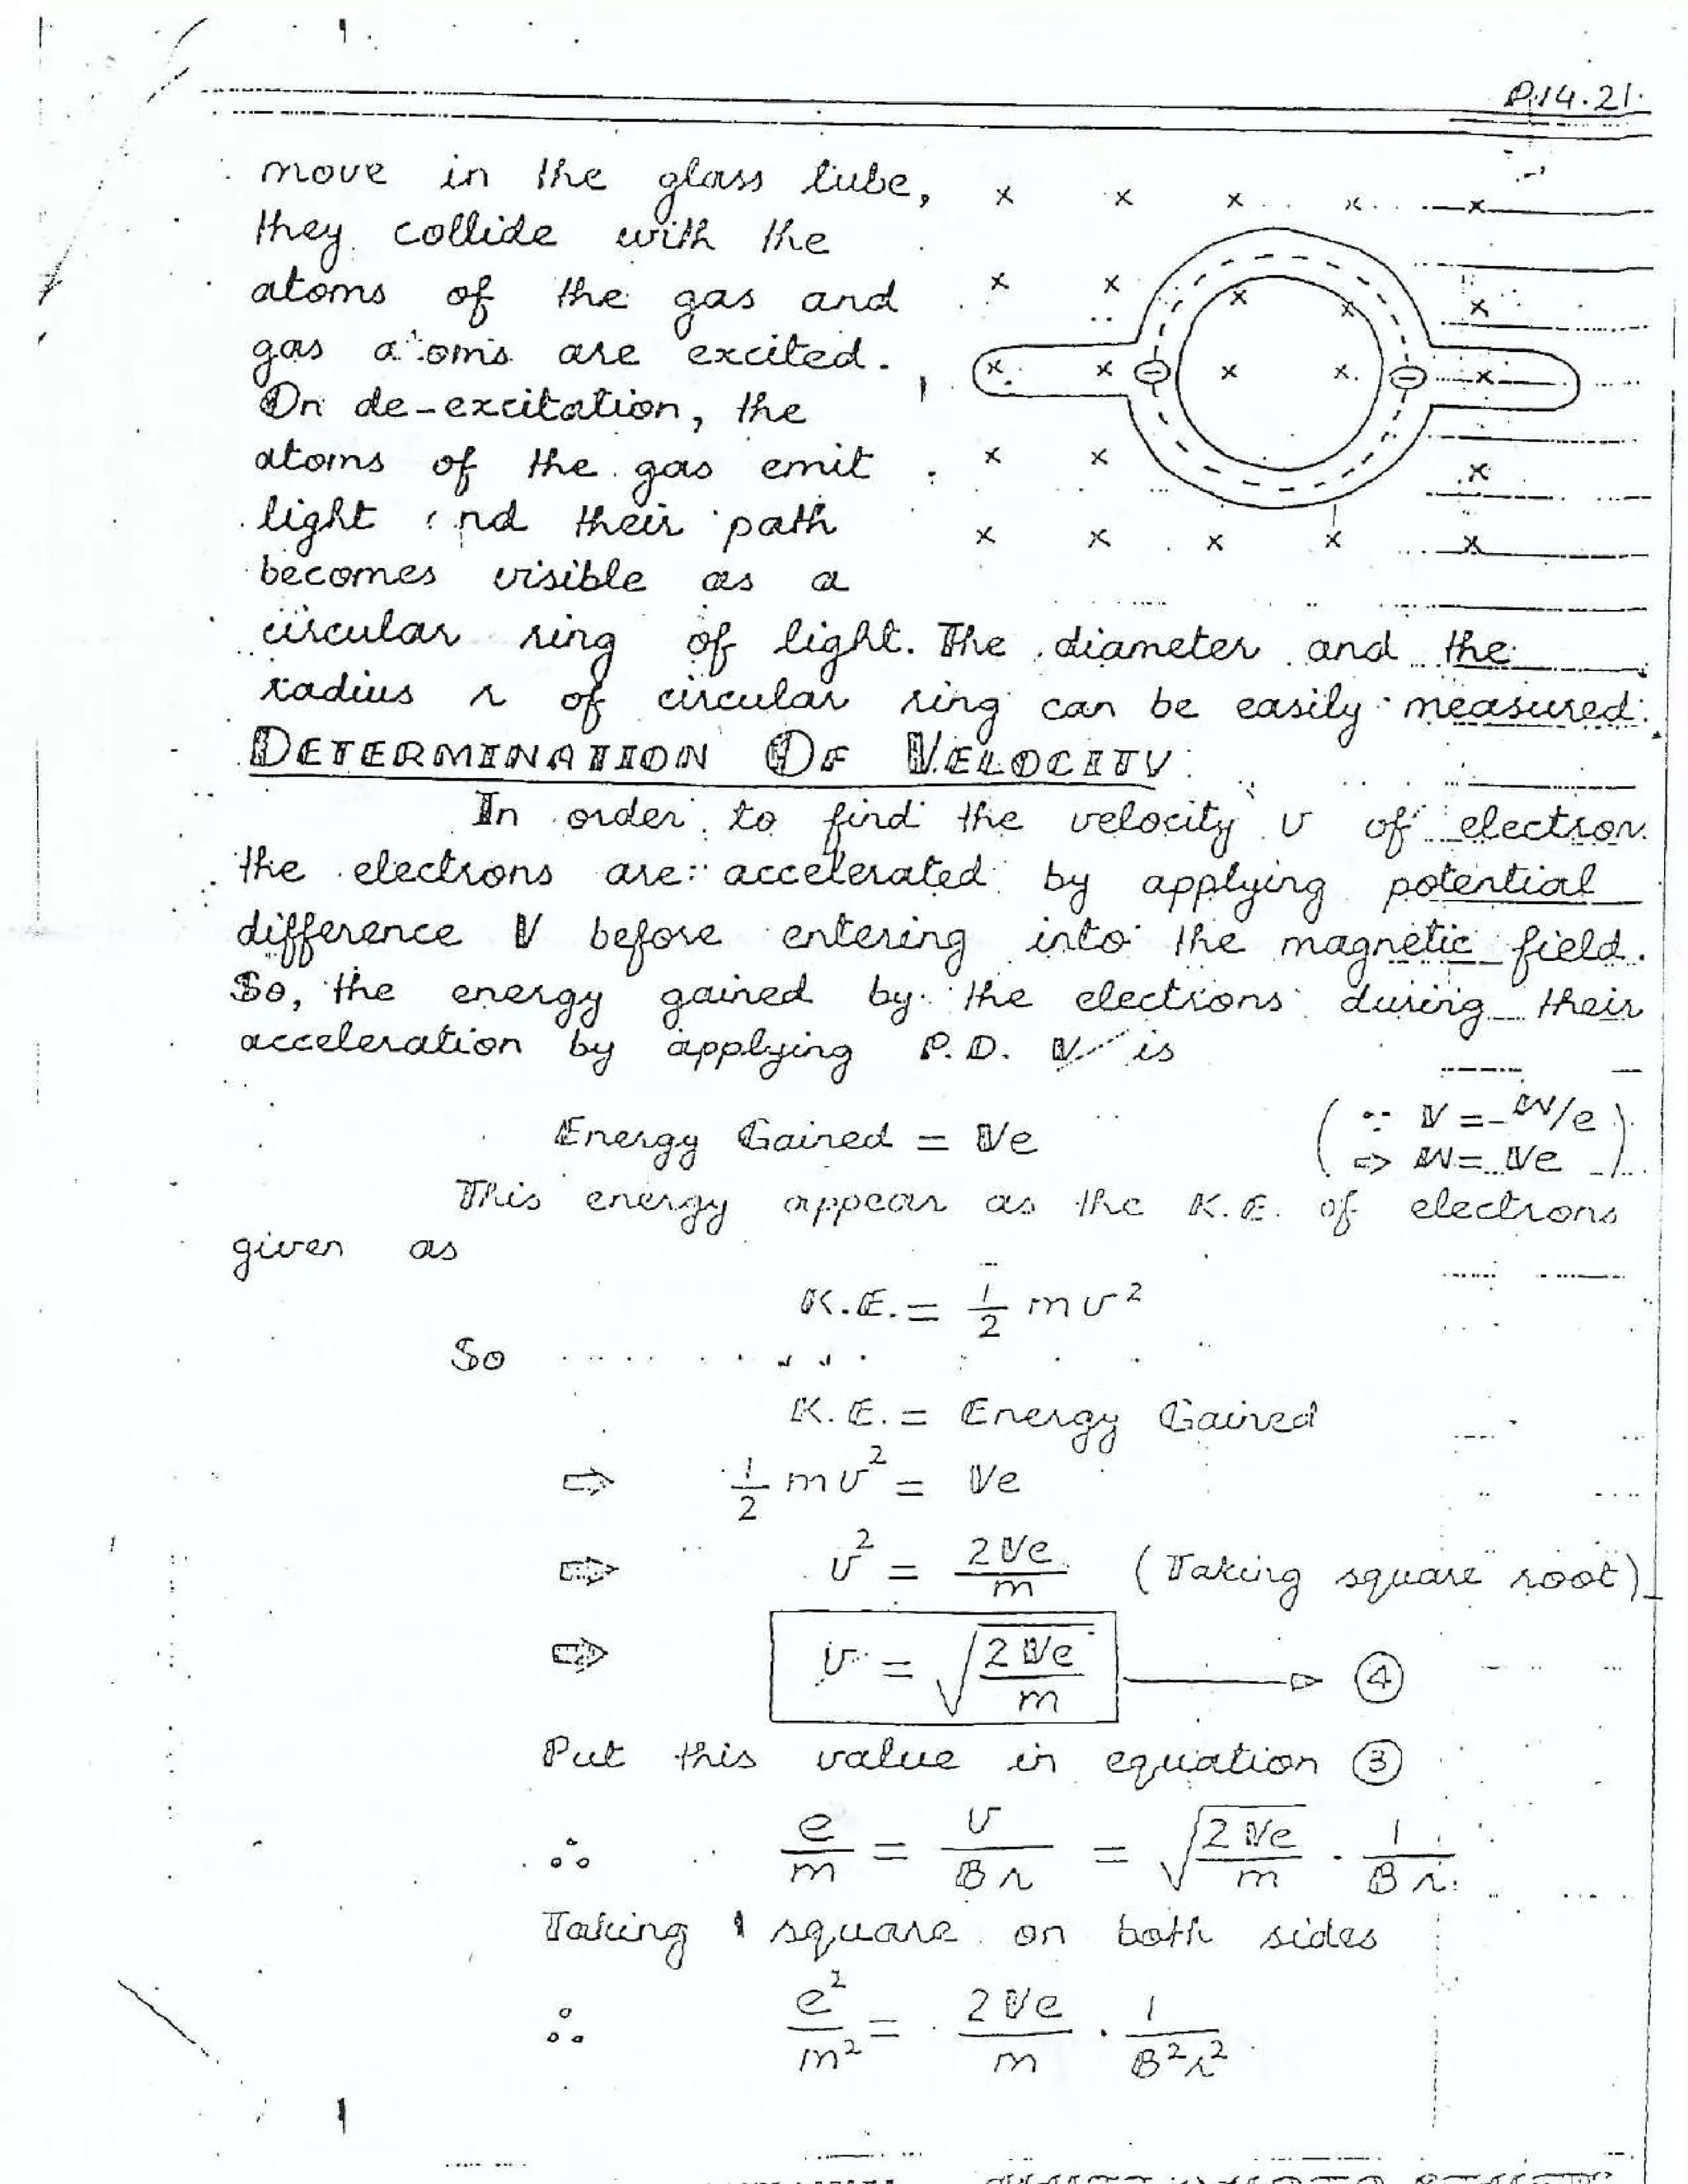 P.14.21.
move in the glass tube,
they collide with the
atoms of the gas and
gas atoms are excited.
On de-excitation, the
atoms of the gas emit
light and their path
becomes visible as a
circular ring of light. The diameter and the
radius r of circular ring can be easily measured.
DETERMINATION OF VELOCITY
In order to find the velocity v of electron
the electrons are accelerated by applying potential
difference V before entering into the magnetic field.
So, the energy gained by the electrons during their
acceleration by applying P.D. V is
Energy Gained = Ve (∵ V = W/e
⇒ W = Ve)
This energy appear as the K.E. of electrons
given as
K.E. = 1/2 mv²
So
K.E. = Energy Gained
⇒ 1/2 mv² = Ve
⇒ v² = 2Ve/m (Taking square root)
⇒ v = √(2Ve/m) → ④
Put this value in equation ③
∴ e/m = v/Br = √(2Ve/m) · 1/Br
Taking square on both sides
∴ e²/m² = 2Ve/m · 1/B²r²